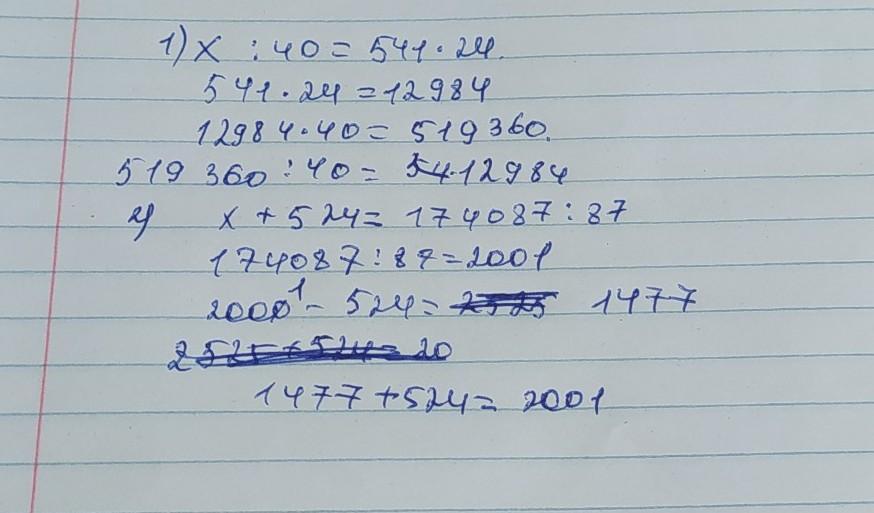 1) x : 40 = 541 · 24.
541 · 24 = 12984
12984 · 40 = 519 360.
519 360 : 40 = 12984
x + 524 = 174087 : 87
174087 : 87 = 2001
2001 - 524 = 1477
20
1477 + 524 = 2001